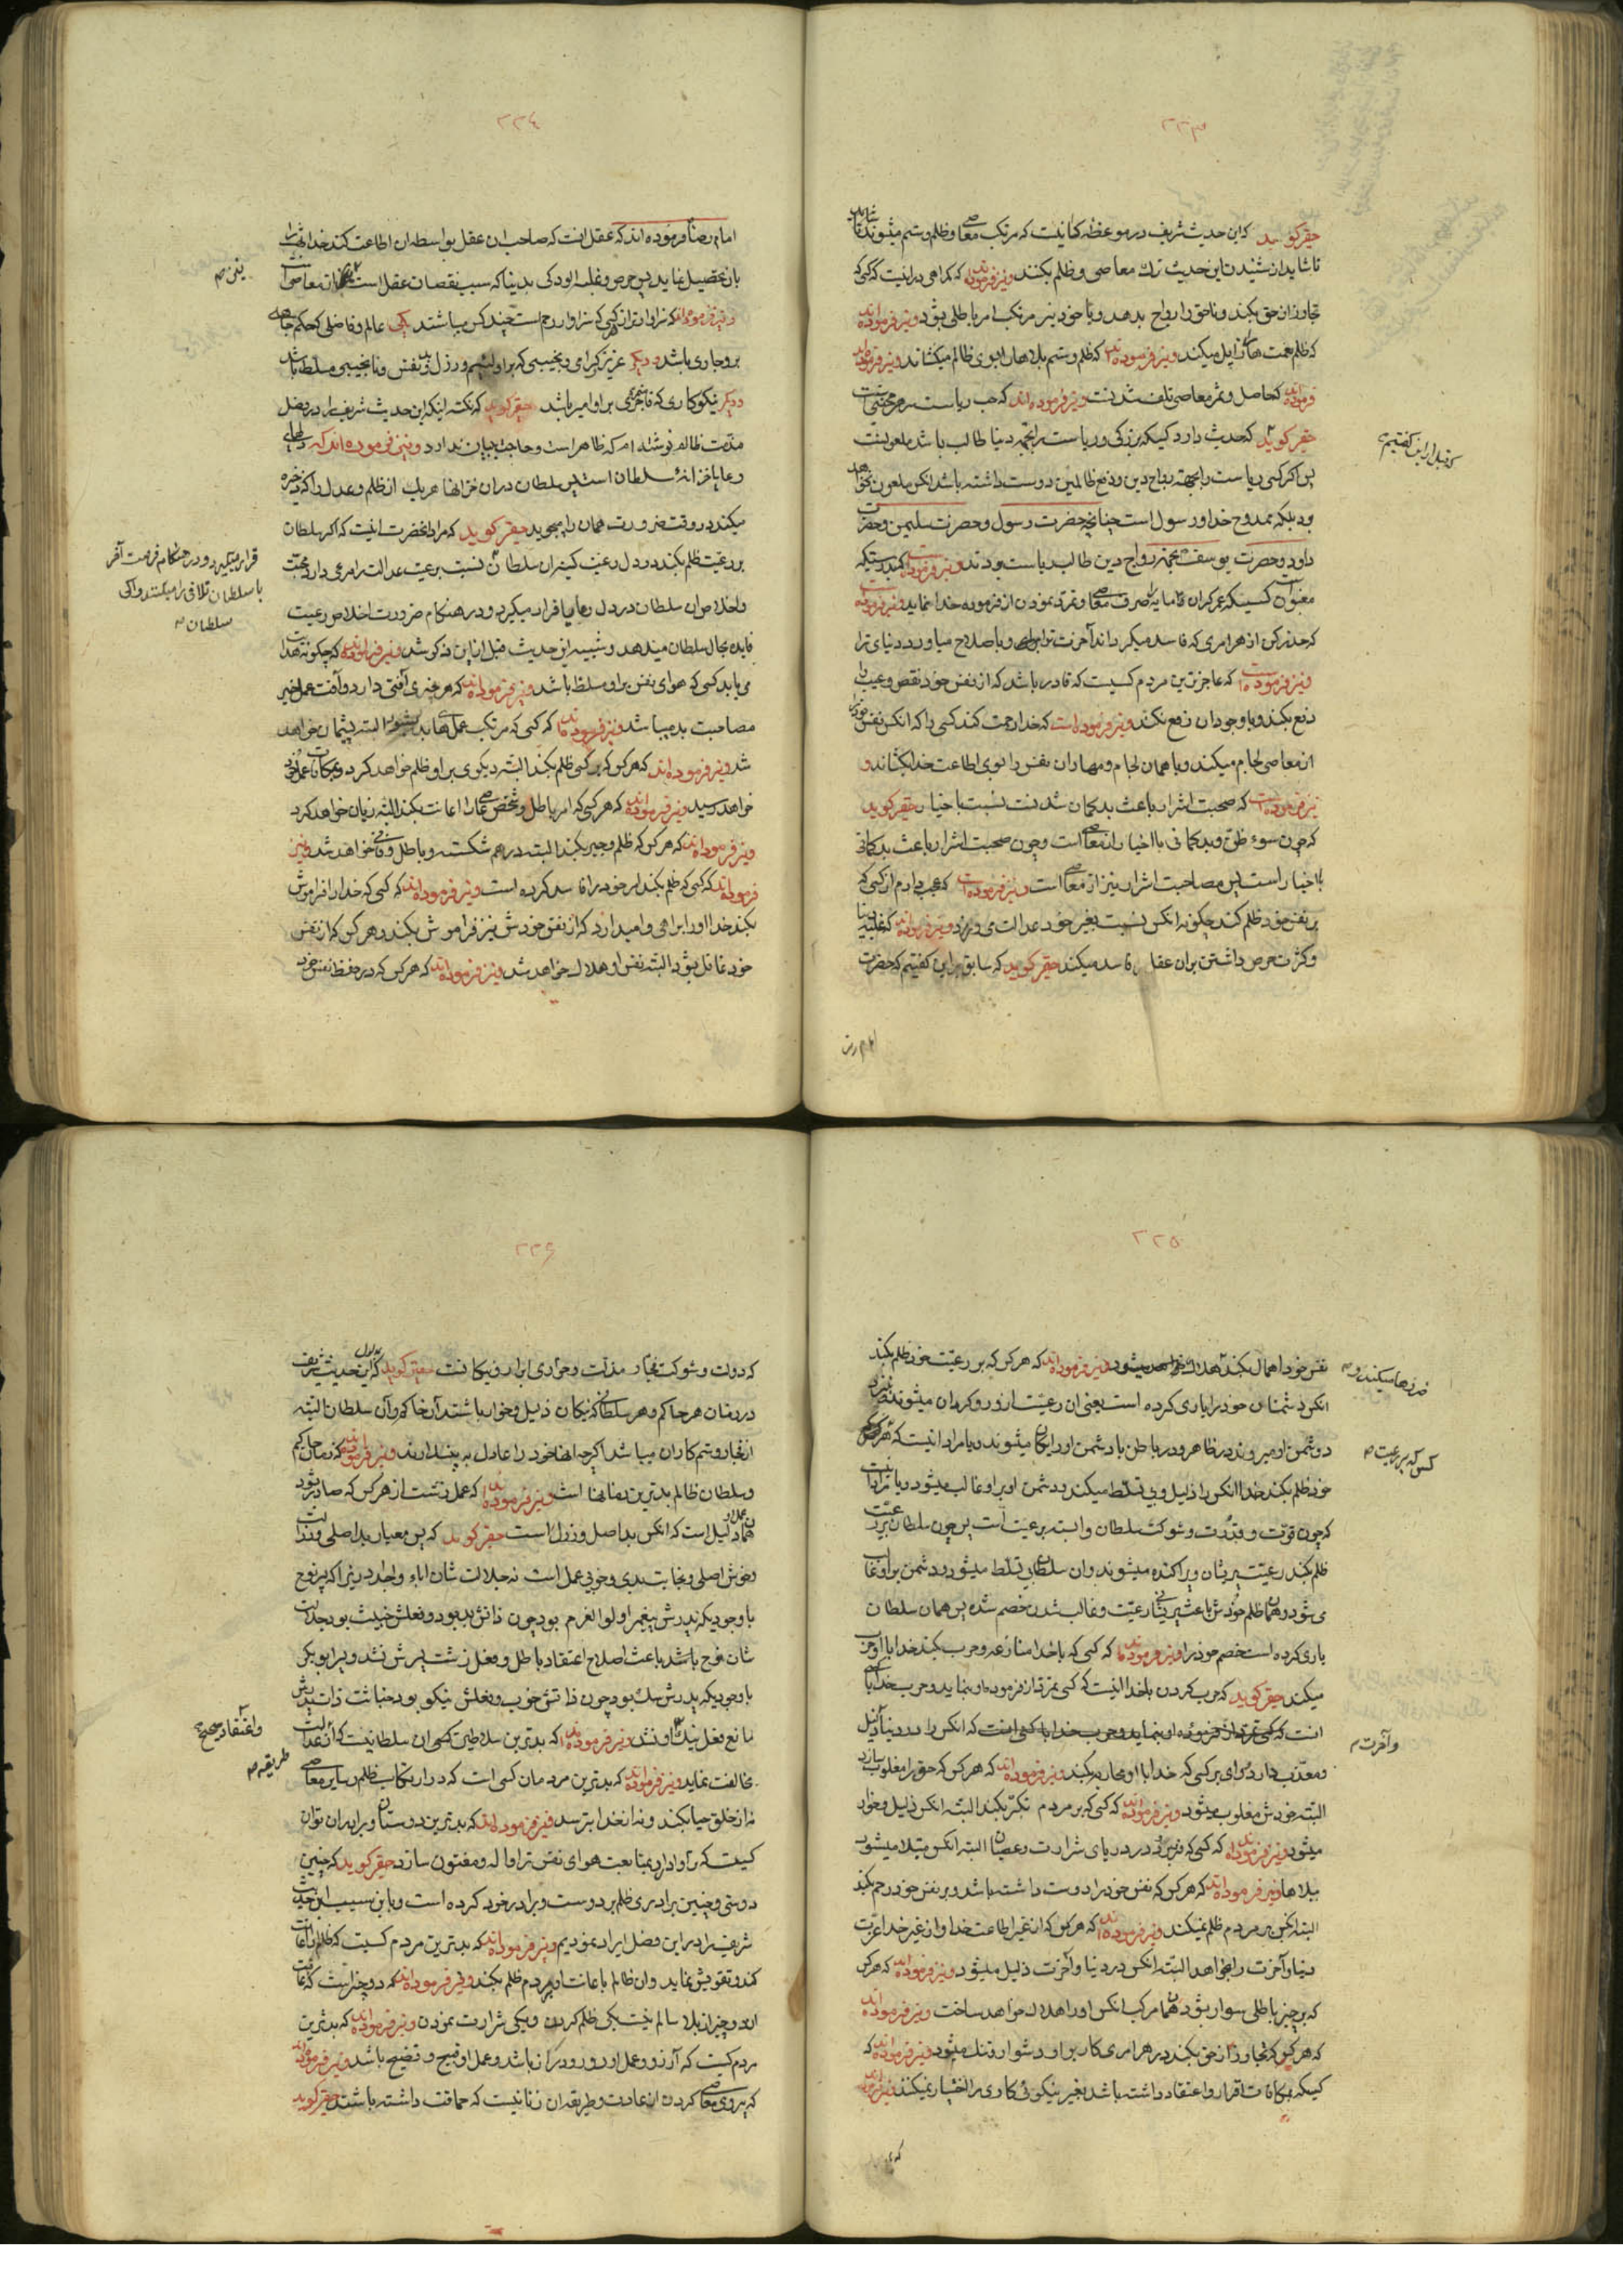 ۲۲۳
حقیر گوید که این حدیث شریف در موعظه کسانیست که مرتکب معاصی و ظلم و ستم میشوند
تا شاید از شنیدن این حدیث ترک معاصی و ظلم بکنند و نیز فرموده‌اند که گمراهی در اینست که کسی که
تجاوز از حق بکند و ناحق را رواج بدهد و یا خود نیز مرتکب امر باطلی بشود و نیز فرموده‌اند
که ظلم نعمت‌ها را زایل میکند و نیز فرموده‌اند که ظلم و ستم بلاها را بسوی ظالم میکشاند و نیز
فرموده‌اند که حاصل و ثمر معاصی تلف شدنست و نیز فرموده‌اند که حب ریاست سر هر محنتی است
حقیر گوید که حدیث دارد کسیکه بزرگی و ریاست را بجهة دنیا طالب باشد ملعونست
پس اگر کسی ریاست را بجهة رواج دین و دفع ظالمین دوست داشته باشد آنکس ملعون نخواهد
بود بلکه ممدوح خدا و رسول است چنانچه حضرت رسول و حضرت سلیمن و حضرت
داود و حضرت یوسف بجهة رواج دین طالب ریاست بودند و نیز فرموده است که بدرستیکه
مغبون کسیست که عمر گران مایه را صرف معاصی و تمرد نمودن از فرموده خدا نماید و نیز فرموده
که حذر کن از هر امری که فاسد میگرداند آخرت ترا و باصلاح میاورد دنیای ترا
و نیز فرموده است که عاجزترین مردم کسیست که قادر باشد که از نفس خود نقص و عیب را
دفع بکند و با وجود آن دفع نکند و نیز فرموده است که خدا رحمت کند کسی را که آنکس نفس خود را
از معاصی لجام میکند و با همان لجام و مهار آن نفس را بسوی اطاعت خدا بکشاند و
نیز فرموده است که صحبت اشرار باعث بدگمان شدنست نسبت باخیار حقیر گوید
که چون سوء ظن و بدگمانی با اخیار از معاصی است و چون صحبت اشرار باعث بدگمانی
با اخیار است پس مصاحبت اشرار نیز از معاصی است و نیز فرموده است که عجب دارم از کسی که
بر نفس خود ظلم کند چگونه آنکس نسبت بغیر خود عدالت می ورزد و نیز فرموده‌اند که غلبه دنیا
و کثرت حرص داشتن بر آن عقل را فاسد میکند حقیر گوید که سابق بر این گفتیم که حضرت
که قبل از این گفتیم
امام رضا
۲۲۴
امام رضا فرموده‌اند که عقل آنست که صاحب آن عقل بواسطه آن اطاعت کند خدا را
بان تحصیل نماید پس حرص و غلبه الودگی بدینا که سبب نقصان عقل است
و نیز فرموده‌اند که سزاوارتر از هر کسی که سزاوار رحم است چند کس میباشند یکی عالم و فاضلی که حکم جاهلی
بر او جاری باشد و دیگر عزیز گرامی و نجیبی که بر او لئیم و رزل و بد نفس و نانجیبی مسلط باشد
و دیگر نیکوکاری که فاجری بر او امیر باشد حقیر گوید که نکته اینکه این حدیث شریف را در فصل
مذمت ظالم نوشته‌ام که ظاهر است و حاجت ببیان ندارد و نیز فرموده‌اند که دلهای
رعایا خزانهٔ سلطان است پس سلطان در آن خزانها هر یک از ظلم و عدل را که ذخیره
میکند در وقت ضرورت همان را میجوید حقیر گوید که مراد آنحضرت اینست که اگر سلطان
بر رعیت ظلم بکند در دل رعیت کینه آن سلطان نسبت برعیت عدالت را مرعی دارد محبت
و اخلاص آن سلطان در دل رعایا قرار میگیرد و در هنگام ضرورت اخلاص رعیت
فایده بحال سلطان میدهد و شبیه این حدیث قبل از این مذکور شد و نیز فرموده‌اند که چگونه هدایت
می یابد کسی که هوای نفس بر او مسلط باشد و نیز فرموده‌اند که هر چیزی آفتی دارد و آفت عمل خیر
مصاحبت بد میباشد و نیز فرموده‌اند که کسی که مرتکب عملهای بد بشود البته پشیمان خواهد
شد و نیز فرموده‌اند که هر کس که بر کسی ظلم بکند البته دیگری بر او ظلم خواهد کرد و بمکافات عمل خود
خواهد رسید و نیز فرموده‌اند که هر کسی که امر باطل و شخص عاصی را اعانت بکند البته زیان خواهد کرد
و نیز فرموده‌اند که هر کس که ظلم و جبر بکند البته درهم شکسته و باطل و فانی خواهد شد و نیز
فرموده‌اند که کسی که ظلم بکند امر خود را فاسد کرده است و نیز فرموده‌اند که کسی که خدا را فراموش
بکند خدا او را براهی وا میدارد که از نفس خودش نیز فراموش بکند و هر کس که از نفس
خود غافل بشود البته نفس او هلاک خواهد شد و نیز فرموده‌اند که هر کس که در حفظ نفس خود
قرار میگیرد و در هنگام فرصت آخر
با سلطان تلافی را میکنند و اگر
سلطان
۲۲۵
نفس خود اهمال بکند هلاک میشود و نیز فرموده‌اند که هر کس که بر رعیت خود ظلم بکند
آنکس دشمنان خود را یاری کرده است یعنی آن رعیت از او روگردان میشوند
دشمن او میروند در ظاهر و در باطن با دشمن او یکی میشوند و یا مراد اینست که هر کس
خود ظلم بکند خدا آنکس را ذلیل و بی تسلط میکند و دشمن او بر او غالب میشود و یا مراد اینست
که چون قوت و قدرت و شوکت سلطان وابسته برعیت است پس چون سلطان بر رعیت
ظلم بکند رعیت پریشان و پراکنده میشوند و آن سلطان بی تسلط میشود و دشمن بر او غالب
می شود و همان ظلم خودش باعث پریشانی رعیت و غالب شدن خصم شده پس همان سلطان
یاری کرده است خصم خود را و نیز فرموده‌اند که کسی که با خدا منازعه و حرب بکند خدا با او حرب
میکند حقیر گوید که حرب کردن با خدا اینست که کسی تمرد از فرموده او بنماید و حرب خدا با کسی
انست که کسی تمرد از فرموده او بنماید و حرب خدا با کسی انست که آنکس را در دنیا ذلیل
و معذب دارد وای بر کسی که خدا با او محاربه کند و نیز فرموده‌اند که هر کس که حق را مغلوب سازد
البته خودش مغلوب میشود و نیز فرموده‌اند که کسی که بر مردم تکبر بکند البته آنکس ذلیل و خوار
میشود و نیز فرموده‌اند که کسی که فرو رود در دریای شرارت و عصیان البته آنکس مبتلا میشود
ببلاها و نیز فرموده‌اند که هر کس که نفس خود را دوست داشته باشد و بر نفس خود رحم بکند
البته آنکس بر مردم ظلم نمیکند و نیز فرموده‌اند که هر کس که از غیر اطاعت خدا و از غیر خدا عزت
دنیا و آخرت را بخواهد البته آنکس در دنیا و آخرت ذلیل میشود و نیز فرموده‌اند که هر کس
که بر چیز باطلی سوار بشود همان مرکب آنکس او را هلاک خواهد ساخت و نیز فرموده‌اند
که هر کس که تجاوز از حق بکند در هر امری کار بر او دشوار و تنگ میشود و نیز فرموده‌اند که
کسیکه بمکافات اقرار و اعتقاد داشته باشد بغیر نیکوئی کاری را اختیار نمیکند و نیز
کس که بر رعیت
و آخرت
۲۲۶
که دولت و شوکت فجار مذلت و خواری ابرار و نیکانست حقیر گوید که مدلول این حدیث شریف
در زمان هر حاکم و هر سلطانی که نیکان ذلیل و خوار باشند آن حاکم و آن سلطان البته
از فجار و ستم کاران میباشد اگرچه آنها خود را عادل به پندارند و نیز فرموده‌اند که زمان حاکم
و سلطان ظالم بدترین زمانها است و نیز فرموده‌اند که عمل زشت از هر کس که صادر بشود
همان عمل او دلیل است که آنکس بد اصل و رزل است حقیر گوید که پس معیار بد اصلی و رذالت
و خوش اصلی و نجابت بدی و خوبی عمل است نه جلالت شان اباء و اجداد زیرا که پسر نوح
با وجودیکه پدرش پیغمبر اولوالعزم بود چون ذاتش بد بود و فعلش خبیث بود جلالت
شان نوح باعث اصلاح اعتقاد باطل و فعل زشت پسرش نشد و پسر ابو بکر
با وجودیکه پدرش سک بود چون ذاتش خوب و فعلش نیکو بود خباثت ذات پدرش
مانع فعل نیک او نشد و نیز فرموده‌اند که بدترین سلاطین کسی آن سلطانیست که از عدالت
مخالفت نماید و نیز فرموده‌اند که بدترین مردمان کسی است که در ارتکاب ظلم و سایر معاصی
نه از خلق حیا بکند و نه از خدا بترسد و نیز فرموده‌اند که بدترین دوستان و برادران توان
کسیست که ترا وادارد بمتابعت هوای نفس ترا واله و مفتون سازد حقیر گوید که چنین
دوستی و چنین برادری ظلم بر دوست و برادر خود کرده است و باین سبب این حدیث
شریف را در این فصل ایراد نمودیم و نیز فرموده‌اند که بدترین مردم کسیست که ظالم را اعانت
کند و تقویتش نماید و آن ظالم باعانت او بمردم ظلم بکند و نیز فرموده‌اند که دو چیز است که عاقبت
آن دو چیز از بلا سالم نیست یکی ظلم کردن و یکی شرارت نمودن و نیز فرموده‌اند که بدترین
مردم کسیست که آرزو و عمل او دور و دراز باشد و عمل او قبیح و فضیح باشد و نیز فرموده‌اند
که پیروی معاصی کردن از عادت و طریقه آن زنانیست که حماقت داشته باشند حقیر گوید
و اعتقاد صحیح
طریقه